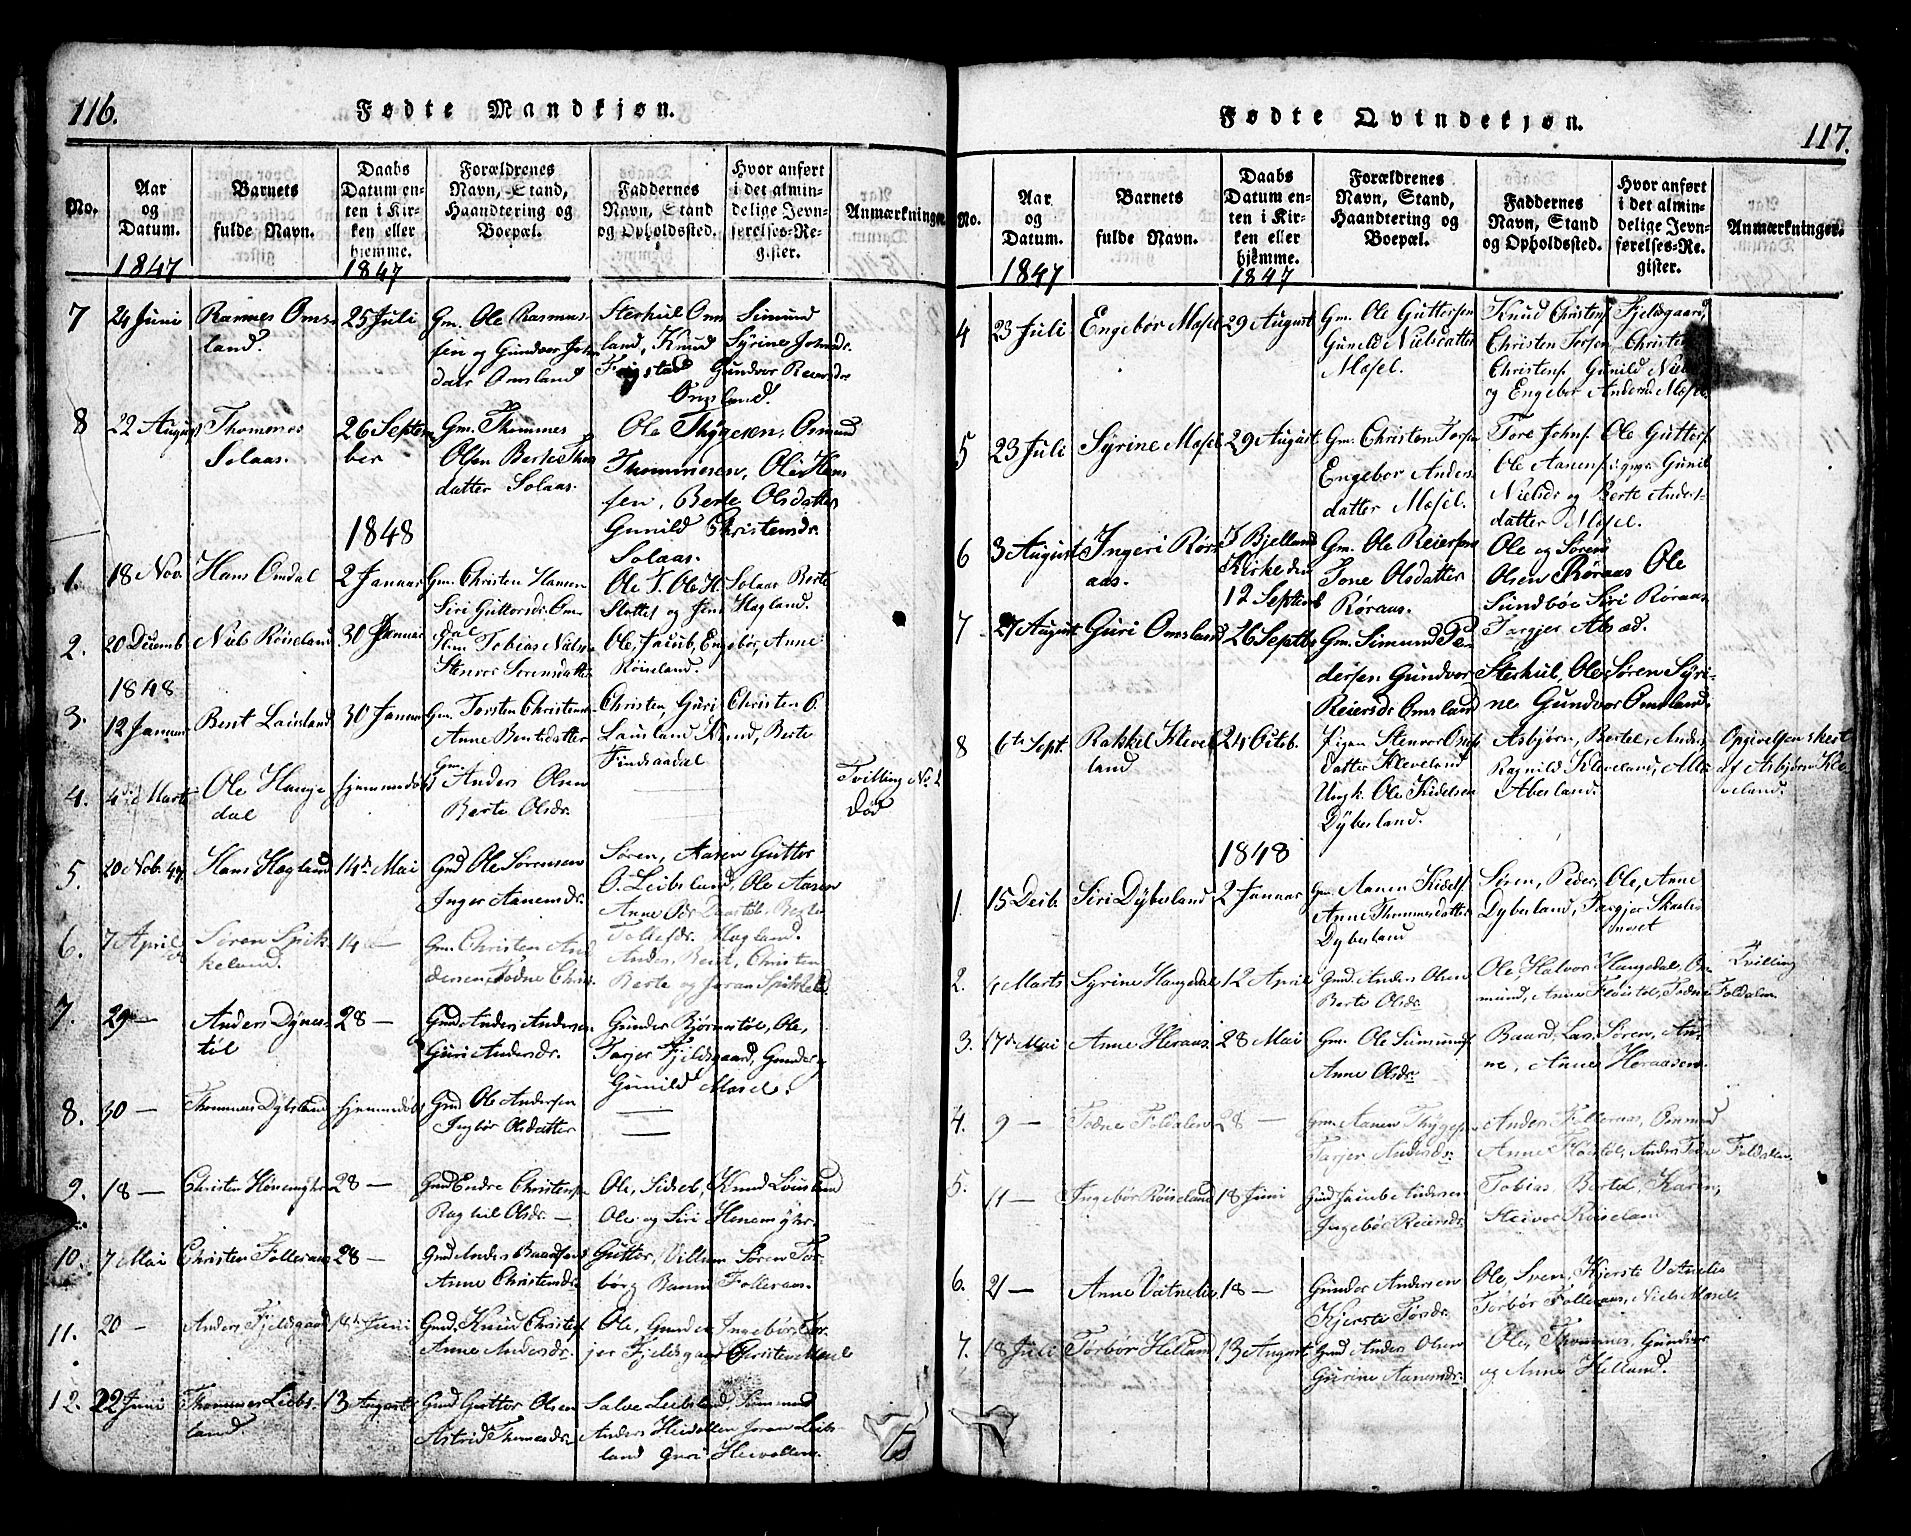 116.
Fødte Mandkjøn.
No.
Aar
og
Datum.
Barnets
fulde Navn.
Daabs
Datum en-
ten i Kir-
ken eller
hjemme.
Forældrenes
Navn, Stand,
Haandtering og
Boepæl.
Faddernes
Navn, Stand
og Opholdssted.
Hvor anført
i det almin-
delige Jevn-
førelses-Re-
gister.
Anmærkninger.
1847
1847
7
24 Juni
Rasmus Oms-
land.
25 Juli
Gm. Ole Rasmus-
sen og Gundvor Joh
datr Omsland
Sterkul Oms
land, Knud
Simund
Syrine Johnsdr.
Gundvor Reiersdr
Omsland.
8
22 August
Thommes
Solaas.
26 Septem
ber
Gm. Thommes
Olsen Berte Tho
datter Solaas.
Ole Thygesen, Osmund
Thommesen, Ole Han
sen, Berte Olsdatter
Gunild Christensdr.
Solaas.
1848
1.
18 Nov.
Hans Omdal
2 Januar
Gm. Christen Hansen
Siri Guttorsdr. Om
dal
Ole T. Ole H. Solaas Berte
Slottet og Jens Hagland.
2.
20 Decemb
Niels Røiseland
30 Januar
Tobias Niels
Stenvor Sørensdatter
Ole, Jacub, Engebør, Anne
Røiseland.
1848
3.
12 Januar
Bent Lauvland
30 Januar
Gm. Torsten Christens
Anne Bentsdatter
Christen, Guri Christen O.
Lauvland Knud, Berte
Findsaadal
4.
4de Marts
Ole Hauge
dal
hjemmedøbt
Gm. Anders Olsen
Berte Olsdr.
Tvilling No. 2
død
5.
20 Nob. 47
Hans Hagland
14de Mai
Gmd Ole Sørensen
Inger Aanensdr.
Søren, Aasen Guttor
O. Leibsland, Ole Aasen
Anne Berte
Tollefsdr. Hagland.
6.
7 April
Søren Spik
keland.
14de —
Gm. Christen And
dersen, Todne Chris
Anders, Bent, Christen
Berte og Joran Spikkeld
7.
29 —
Anders Dynes-
tøl
28 —
Gmd. Anders Andersen
Guri Andersdr.
Gunder Bjørnestøl, Ole,
Tarjer Fjeldsgaard, Gunder
Gunild Mosel.
8.
30 —
Thommes Dybsland
hjemmedøbt
Gmd Ole Andersen
Ingbør Olsdatter
9.
18 —
Christen Hønemyhr
28 —
Gmd Endre Christens
Raghil Olsdr. —
Ole, Sidsel, Knud Lauvland
Ole og Siri Hønemyhr.
10.
7 Mai
Christen Folleraas
28 —
Gmd. Anders Baardsen
Anne Christensdr
Guttor, Villum Søren Tor-
børg Folleraas.
11.
20 —
Anders Fjeldsgaard
18de Juni
Gmd. Knud Christens
Anne Andersdr.
Ole, Gunder Ingebør, Tar-
jer Fjeldsgaard Christen Mosel
12.
22 Juni
Thommes Leibs-
land.
13 August
Gmd Guttor Olsen
Astrid Thomesdr.
Salve Leibsland, Simmund
Anders Heivollen Joran Leibs-
land Guri Heivollen.
117.
Fødte Qvindekjøn.
No.
Aar
og
Datum.
Barnets
fulde Navn.
Daabs
Datum en-
ten i Kir-
ken eller
hjemme.
Forældrenes
Navn, Stand,
Haandtering og
Boepæl.
Faddernes
Navn, Stand
og Opholdssted.
Hvor anført
i det almin-
delige Jevn-
førelses-Re-
gister.
Anmærkninger.
1847
1847
4
23 Juli
Engebør Mosel
29 August
Gm. Ole Guttorsen
Gunild Nielsdatter
Mosel.
Knud Christens Fjeldsgaard,
Christen Torsen, Christen
Christens, Gunild Niels
og Engebør Andersd. Mosel.
5
23 Juli
Syrine Mosel
29 August
Gm. Christen Torsen
Engebor Anders-
datter Mosel.
Tore Johns. Ole Guttors.
Ole Aanens. Gunild
Nielsdr og Berte Anders-
datter Mosel.
6
3 August
Ingeri Rør-
aas.
I Bjelland
Kirke den
12 Septemb
Gm. Ole Reiersen
Tone Olsdatter
Røraas.
Ole og Søren
Olsen Røraas Ole
Sundbøe Siri Røraas
Targjer
7
27 August
Guri Omsland
26 Septbr
Gm. Simund Pe-
dersen Gundvor
Reiersdr Omsland
Sterkul, Ole Søren Syri-
ne Gundvor Omsland.
8
6te Sept.
Rakkel Kleve
land
24 Octob.
Pigen Stenvor
datter Kleveland
Ungk. Ole Kidelsen
Dybesland.
Asbjørn, Bertel, Anders,
Ragnild Kleveland,
Abesland.
Opgivelsen skeet
af Asbjørn Kle
veland.
1848
1.
15 Decb.
Siri Dybesland
2 Januar
Gm. Aanen Kidels.
Anne Thommesdatter
Dybesland
Søren, Peder, Ole, Anne
Dybesland, Targjer Skuelis-
moset
2.
4 Marts
Syrine Haugedal
12 April
Gmd Anders Olsen
Berte Olsdr.
Ole, Halvor Haugedal, Os-
mund, Anne Fløistøl, Todne Foldalen
Tvilling
3.
17de Mai
Anne Heraas
28 Mai
Gm. Ole Simunds
Anne Olsdr.
Baard, Lars, Søren, An-
ne, Anne Heraasen.
4.
9 —
Todne Foldalen
28 —
Gm. Aanen Thyges
Tarjer Andersdr.
Anders Folleraas, Osmund
Anne Fløistøl, Anders Todne Foldalen
5.
11 —
Ingebør Røiseland
18 Juni
Gmd Jacob
Ingebør Reiersdr.
Tobias, Bertel, Karen,
Steivor Røiseland
6.
21 —
Anne Vatnelie
18 —
Gunder Andersen
Kjerste Torsdr.
Ole, Sven, Kjerste Vatnelie
Torbør Folleraas, Niels Mosel
7.
18 Juli
Torbør Helland
13 August
Gmd Anders Olsen
Gurine Aanensdr.
Ole, Thommes, Gundvor
og Anne Helland.